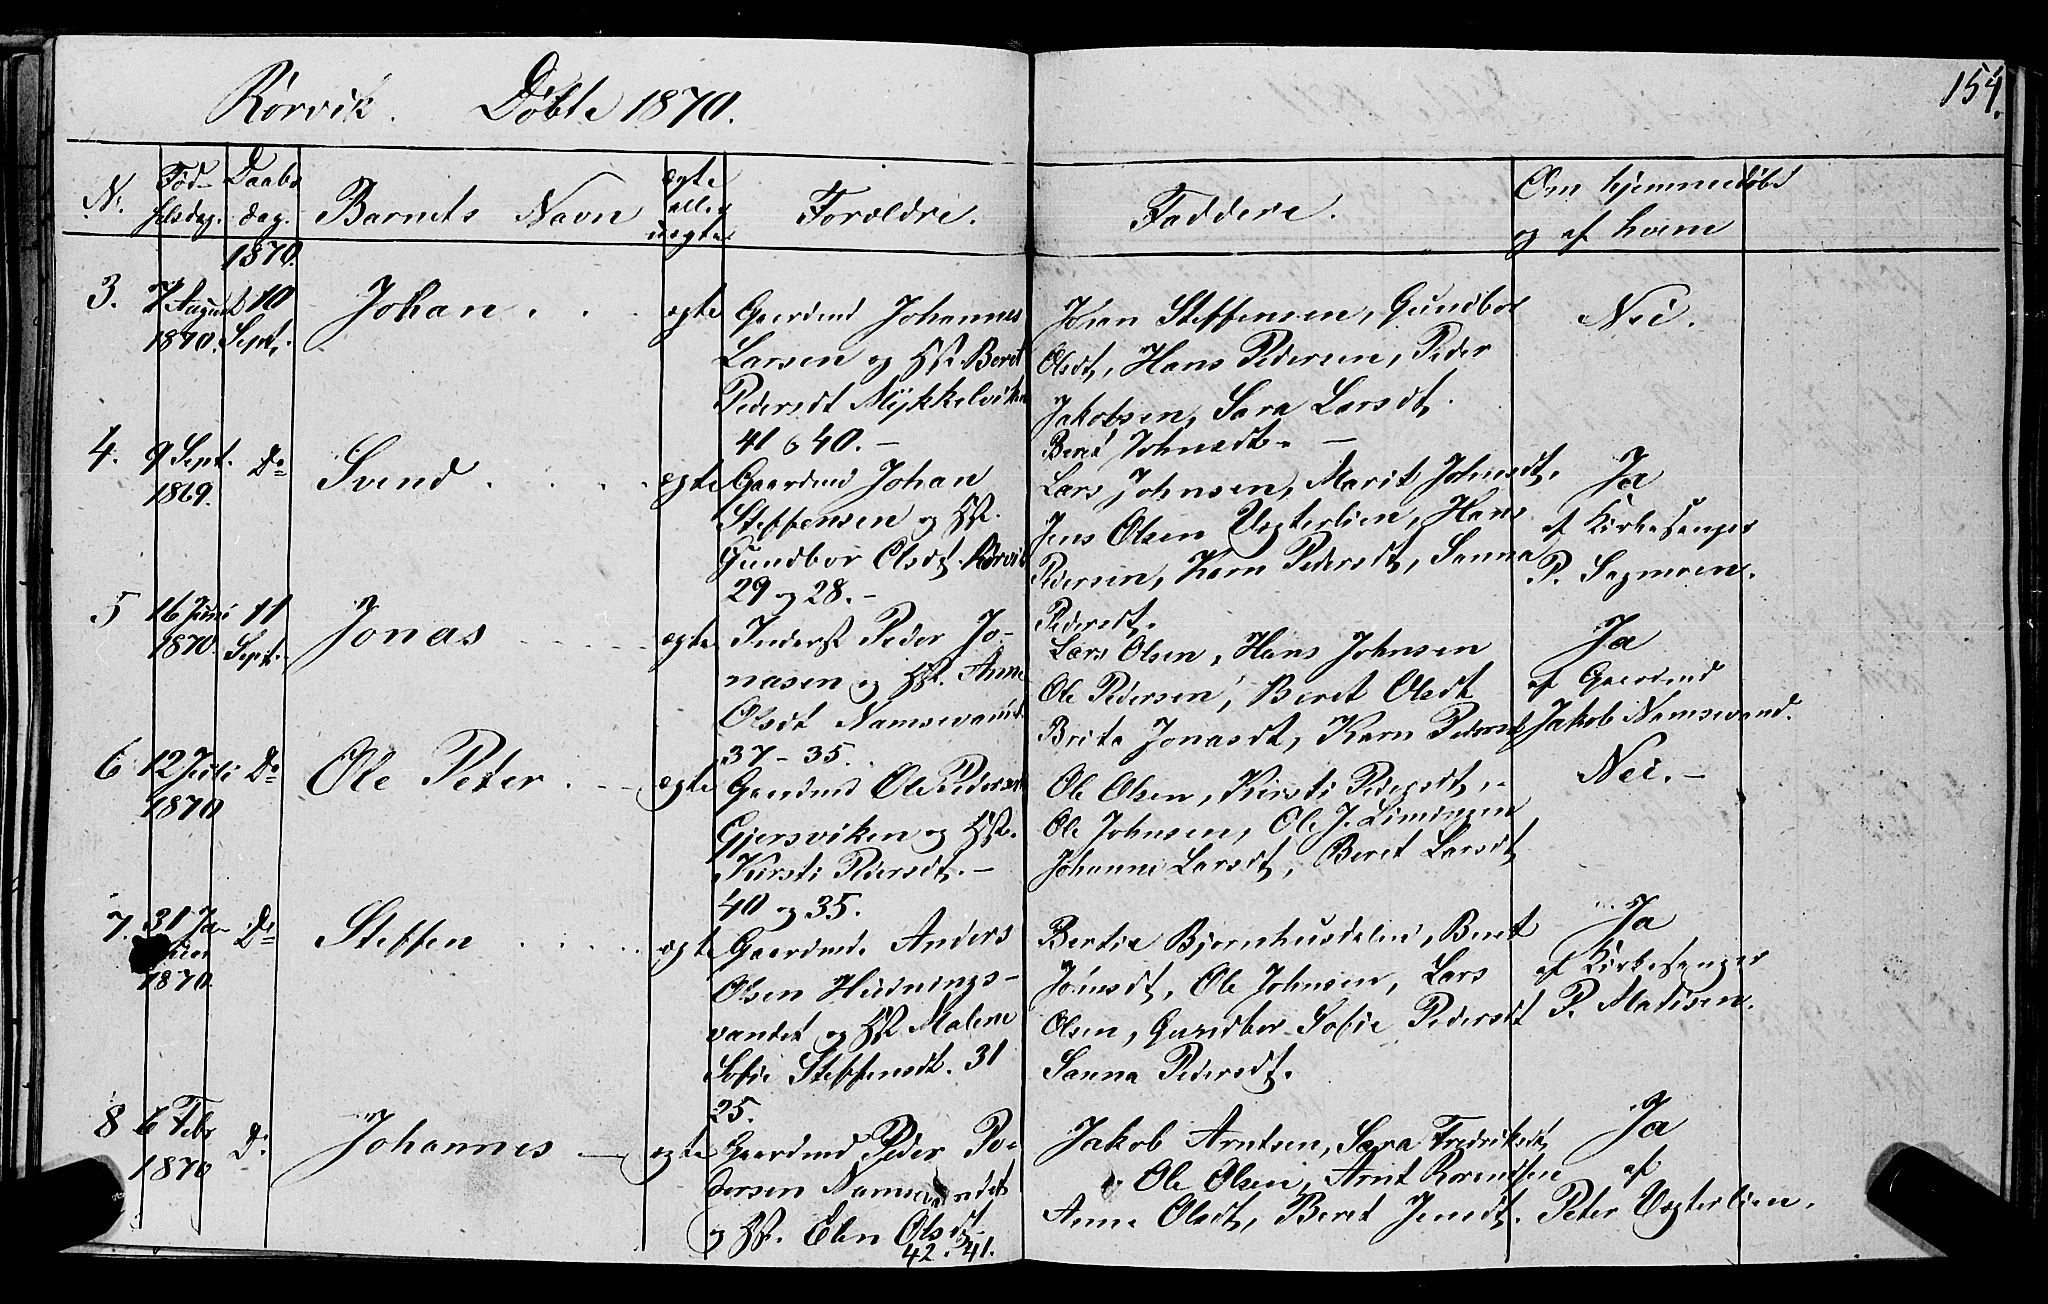 154.
Rørvik. Døbte 1870.
N. Fød- Daabs ægte Om hjemmedøbt
felsdag. dag. Barnets Navn eller Forældre. Faddere. og af hvem
uægte
1870.
3. 7 August 10 Johan . . . ægte Gaardmd Johannes
1870. Sept.
Larsen og Hst. Beret
Pedersdt Mykkelviken
41 o 40. –
Johan Steffensen, Gundbor
Olsdt, Hans Pedersen, Peder
Jakobsen, Sara Larsdt.
Beret Johnsdt. –
Nei.
4. 9 Sept. Do Svend . . . . ægte Gaardmd Johan
1869.
Steffensen og Hst.
Gundbor Olsdt. Rørvik
29 og 28. –
Lars Johnsen, Marit Johnsdt.
Jens Olsen Vegterlien, Hans
Pedersen, Karn Pedersdt, Sanna
Pedersdt.
Ja
af Kirkesanger
P. Sagmoen.
5 16 Juni 11 Jonas ægte Inderst Peder Jo-
1870. Sept.
nasen og Hst. Anne
Olsdt Namsvand.
37 – 35.
Lars Olsen, Hans Johnsen
Ole Pedersen, Beret Olsdt
Brita Jonasdt, Karn Pedersdt
Ja
af Gaardmd
Jakob Namsvand.
6 12 Juli Do Ole Peter . – ægte Gaardmd Ole Pedersen
1870
Gjersviken og Hst.
Kirsti Pedersdt. –
40 og 35.
Ole Olsen, Kirsti Pedersdt, –
Ole Johnsen, Ole J. Limingen
Johanna Larsdt, Beret Larsdt
Nei. –
7. 31 Ja- Do Steffen . . . . . ægte Gaardmd. Anders
nuar
1870.
Olsen Hudnings-
vandet og Hst Malene
Sofie Steffensdt. 31
25.
Bertia Bjørnhusdalen, Beret
Jonsdt, Ole Johnsen, Lars
Olsen, Gundbor Sofie Pedersdt
Sanna Pedersdt.
Ja
af Kirkesanger
P. Madsen.
8 6 Febr Do Johannes – ægte Gaardmd Peder Pe-
1870
dersen Namsvandet
og Hst. Elen Olsdt
42. 41.
Jakob Arntsen, Sara Fredriksdt
Ole Olsen, Arnt Lorentsen
Anne Olsdt, Beret Jensdt.
Ja
af
Peter Vegterlien.